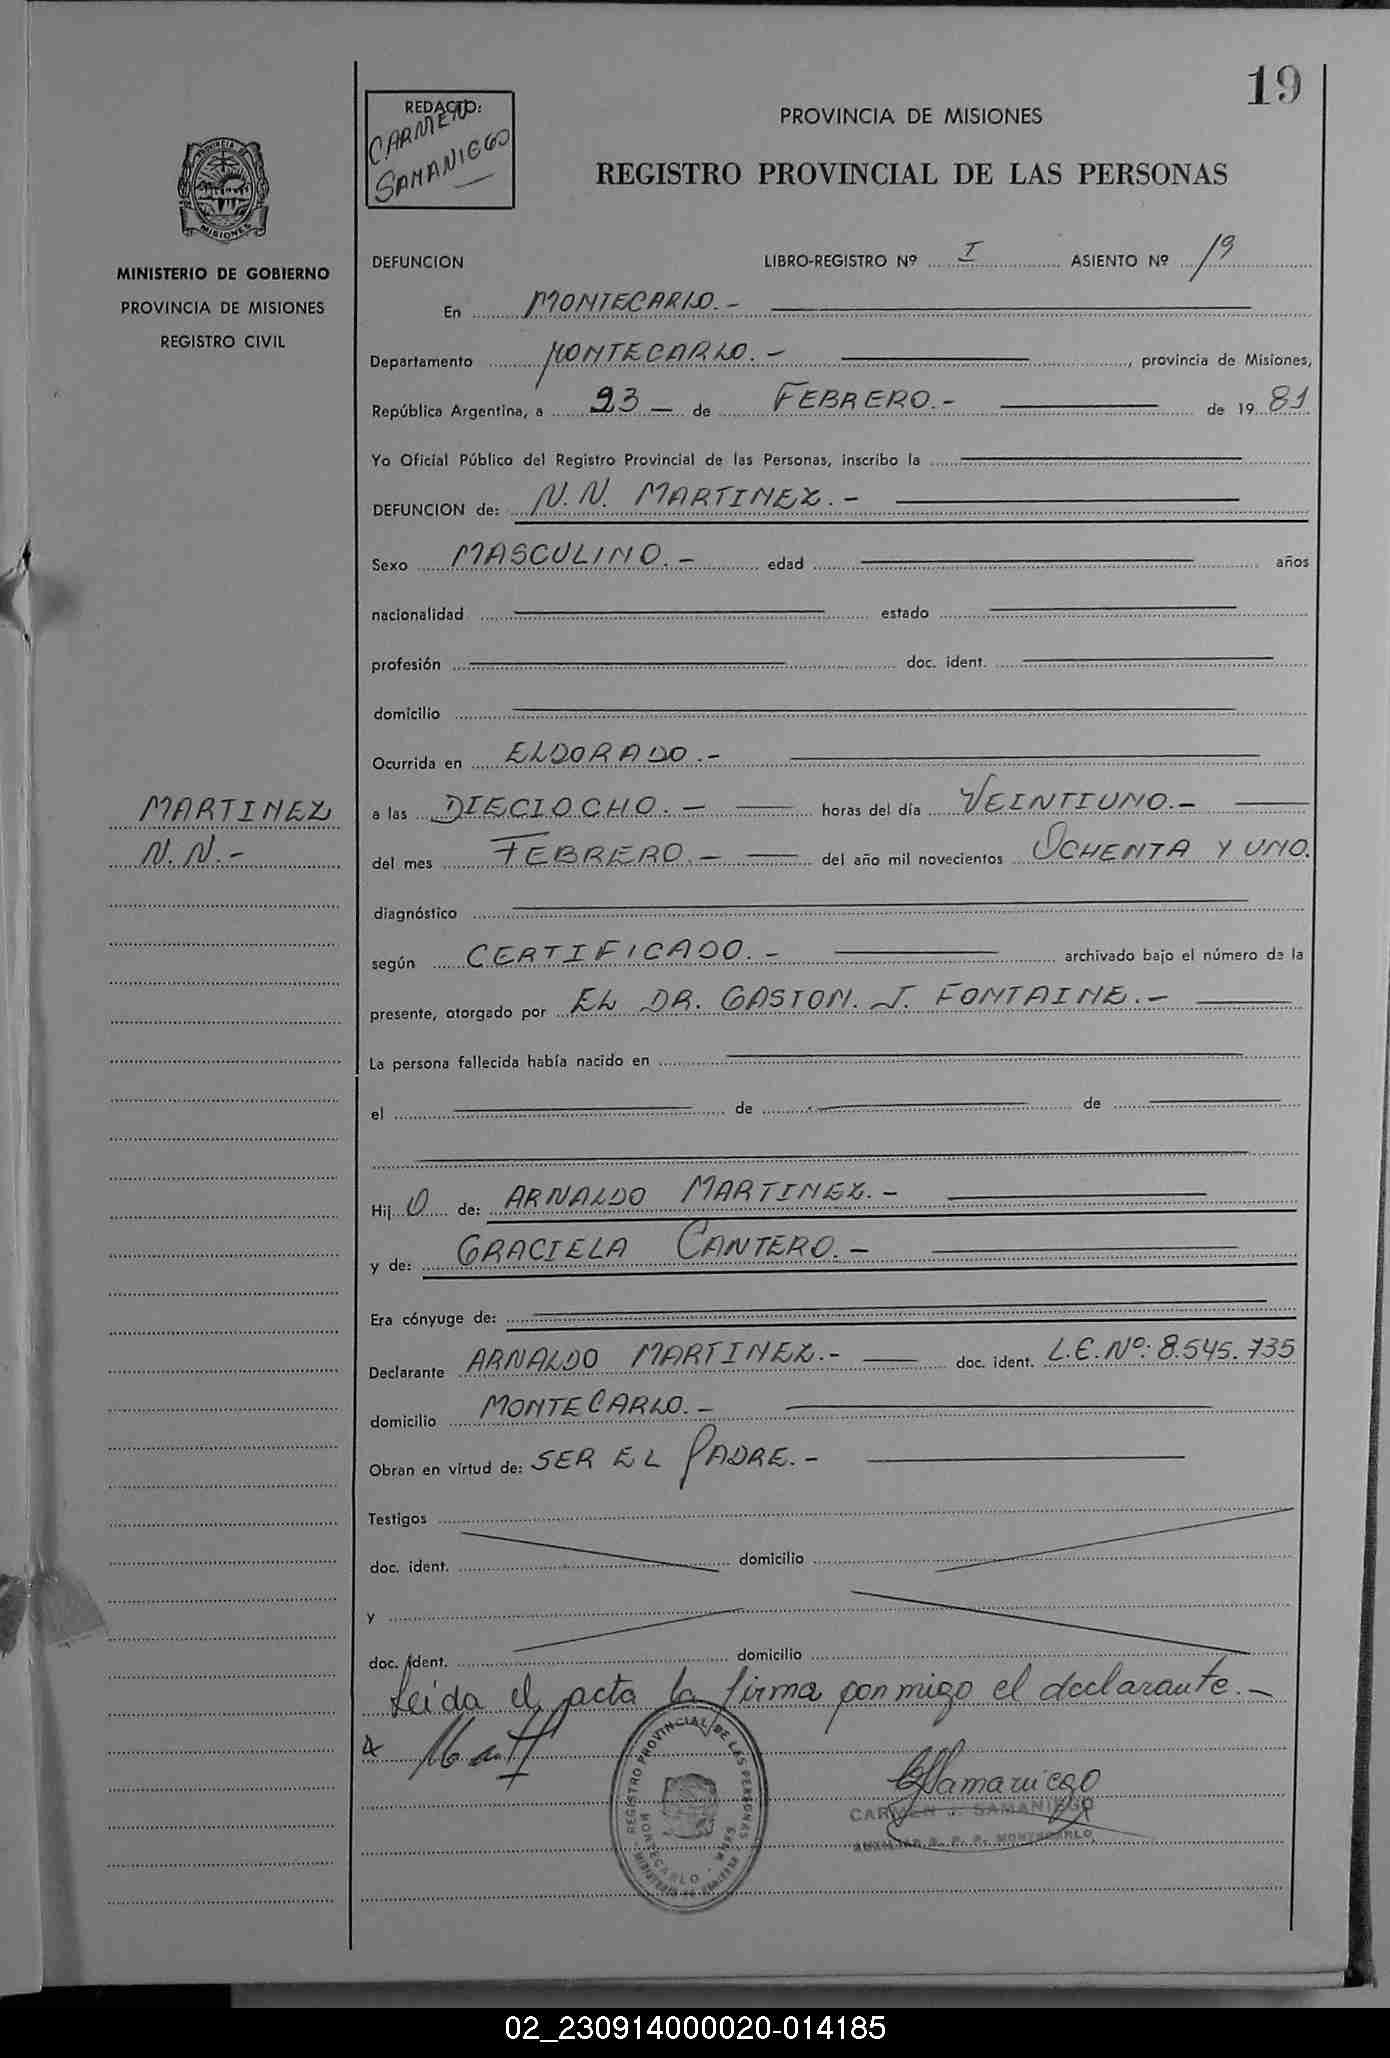 19
REDACTO:
CARMEN
SAMANIEGO
PROVINCIA DE MISIONES
REGISTRO PROVINCIAL DE LAS PERSONAS
PROVINCIA DE
MISIONES
MINISTERIO DE GOBIERNO
PROVINCIA DE MISIONES
REGISTRO CIVIL
DEFUNCION LIBRO-REGISTRO Nº I ASIENTO Nº 19
En MONTECARLO.-
Departamento MONTECARLO.- , provincia de Misiones,
República Argentina, a 23 - de FEBRERO.- de 19 81
Yo Oficial Público del Registro Provincial de las Personas, inscribo la
DEFUNCION de: N.N. MARTINEZ.-
Sexo MASCULINO.- edad años
nacionalidad estado
profesión doc. ident.
domicilio
Ocurrida en ELDORADO.-
MARTINEZ
N.N.-
a las DIECIOCHO.- horas del día VEINTIUNO.-
del mes FEBRERO.- del año mil novecientos OCHENTA Y UNO.
diagnóstico
según CERTIFICADO.- archivado bajo el número de la
presente, otorgado por EL DR. GASTON. J. FONTAINE.-
La persona fallecida había nacido en
el de de
Hij O de: ARNALDO MARTINEZ.-
y de: GRACIELA CANTERO.-
Era cónyuge de:
Declarante ARNALDO MARTINEZ.- doc. ident. L.E.Nº: 8.545.735
domicilio MONTECARLO.-
Obran en virtud de: SER EL PADRE.-
Testigos
doc. ident. domicilio
y
doc. ident. domicilio
Leida el acta la firma conmigo el declarante.-
REGISTRO PROVINCIAL DE LAS PERSONAS
MONTECARLO - MNES
Samaniego
CARMEN J. SAMANIEGO
AUXILIAR R. P. P. MONTECARLO
02_230914000020-014185